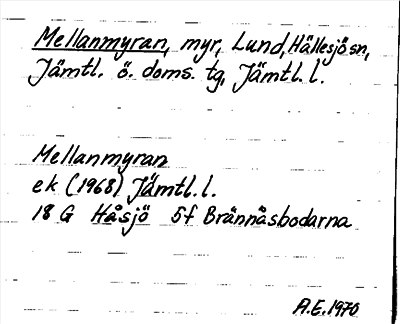 Mellanmyran, myr, Lund, Hällesjö sn,
Jämtl. ö. doms. tg, Jämtl. l.
Mellanmyran
ek (1968) Jämtl. l.
18 G Håsjö 5f Brännåsbodarna
A.E. 1970